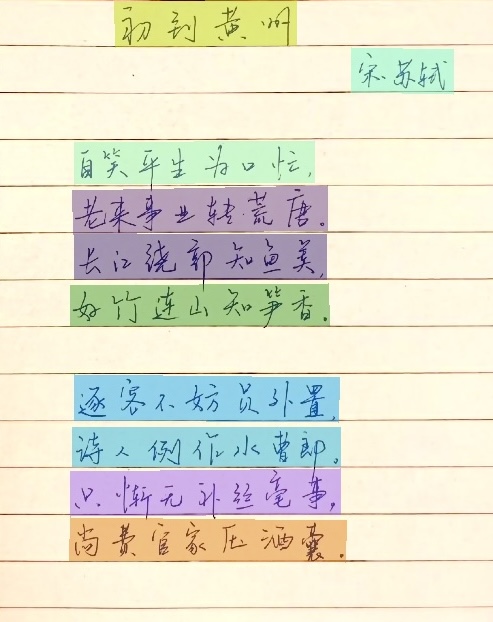 初到黄州
宋.苏轼
自笑平生为口忙,
老来事业转荒唐。
长江绕郭知鱼美,
好竹连山知笋香。
逐客不妨员外置,
诗人例作水曹郎。
只惭无补丝毫事,
尚费官家压酒囊.